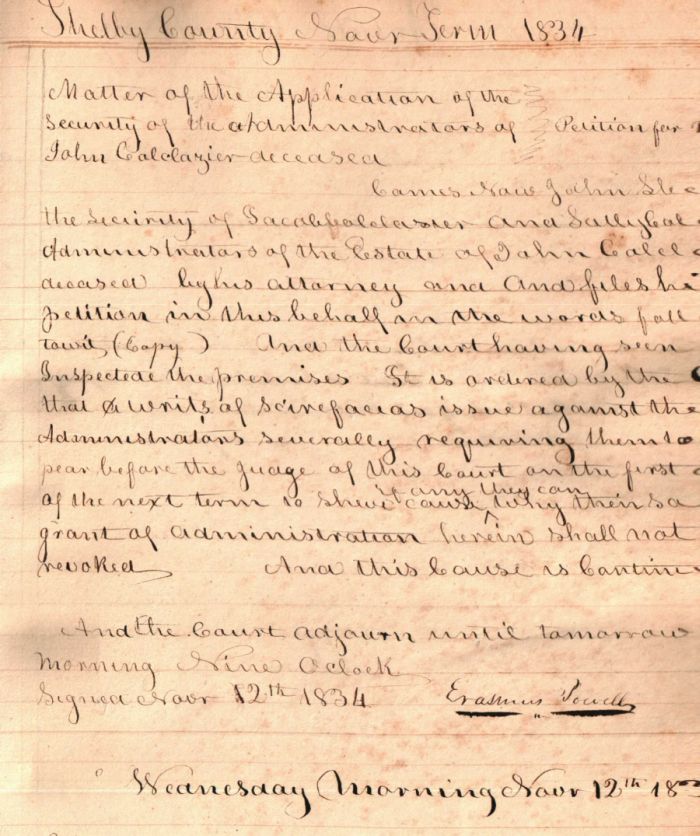 Shelby County Novr Term 1834
Matter of the Application of the
Security of the Administrators of Petition for
John Colclazier deceased
Comes Now John
the Security of Jacob Colclazier and Sally Col
Administrators of the Estate of John Colcl
deceased by his attorney and and files hi
petition in this behalf in the words foll
towit (Copy) And the Court having seen
Inspected the premises It is ordered by the C
that a writs of Scirefacias issue against the
Administrators severally requiring them to
pear before the Judge of this Court on the first
of the next term to shew cause if any they can why their sa
grant of administration herein shall not
revoked And this Cause is Contin
And the Court adjourn until tomorrow
Morning Nine Oclock
Signed Novr 12th 1834 Erasmus Powell
Wednesday Morning Novr 12th 183